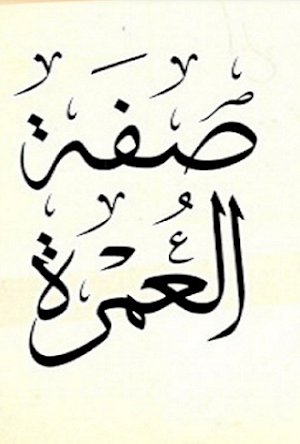 صفة
العمرة